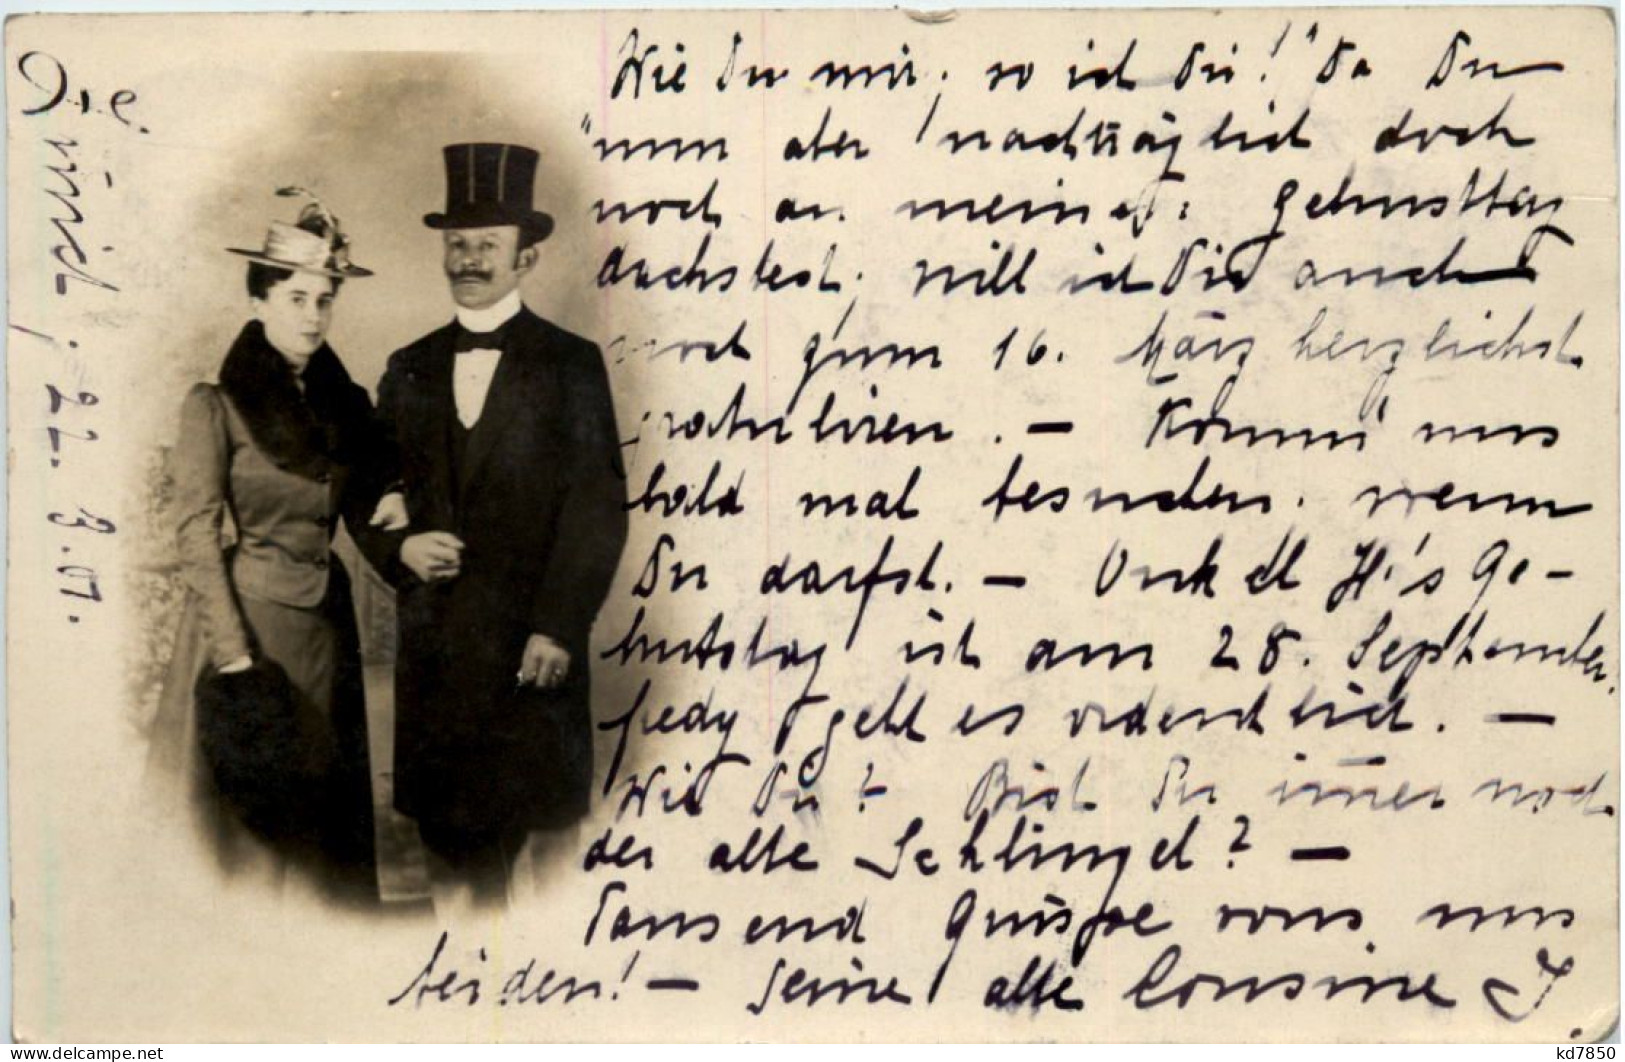 "Wie Du mir, so ich Dir!" Da Du
nun aber nachträglich doch
noch an meinen Geburtstag
dachtest, will ich Dir auch
noch zum 16. März herzlichst
gratuliren. – Komm' uns
bald mal besuchen, wenn
Du darfst. – Onkel H's Ge-
burtstag ist am 28. September.
geht es ordentlich. –
Wie Dir? Bist Du immer noch
der alte Schlingel? –
Tausend Grüsse von uns
beiden! – Deine alte Cousine J.
Zürich, 22. 3. 07.
kd7850